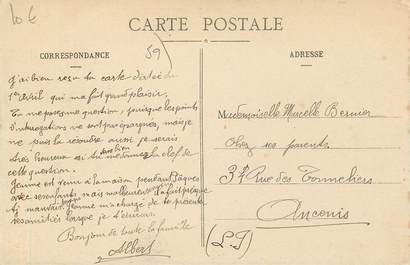 10 €
CARTE POSTALE
59
CORRESPONDANCE
ADRESSE
J'ai bien reçu ta carte datée du
1er Avril qui m'a fait grand plaisir.
Tu me poses une question, puisque les points
d'interrogations ne sont pas épargnés, mais je
ne puis la résoudre aussi je serais
très heureux si tu voulais bien me donner la clef de
cette question.
Jeanne est venue à la maison pendant Pâques
avec ses enfants mais malheureusement il a fait presque
tj mauvais. Jeanne m'a chargé de te présenter
ses amitiés lorsque je t'écrirais.
Bonjour de toute la famille
Albert
Mademoiselle Marcelle Bernier
Chez ses parents
3 Rue des Tonneliers
Ancenis
(L-I)